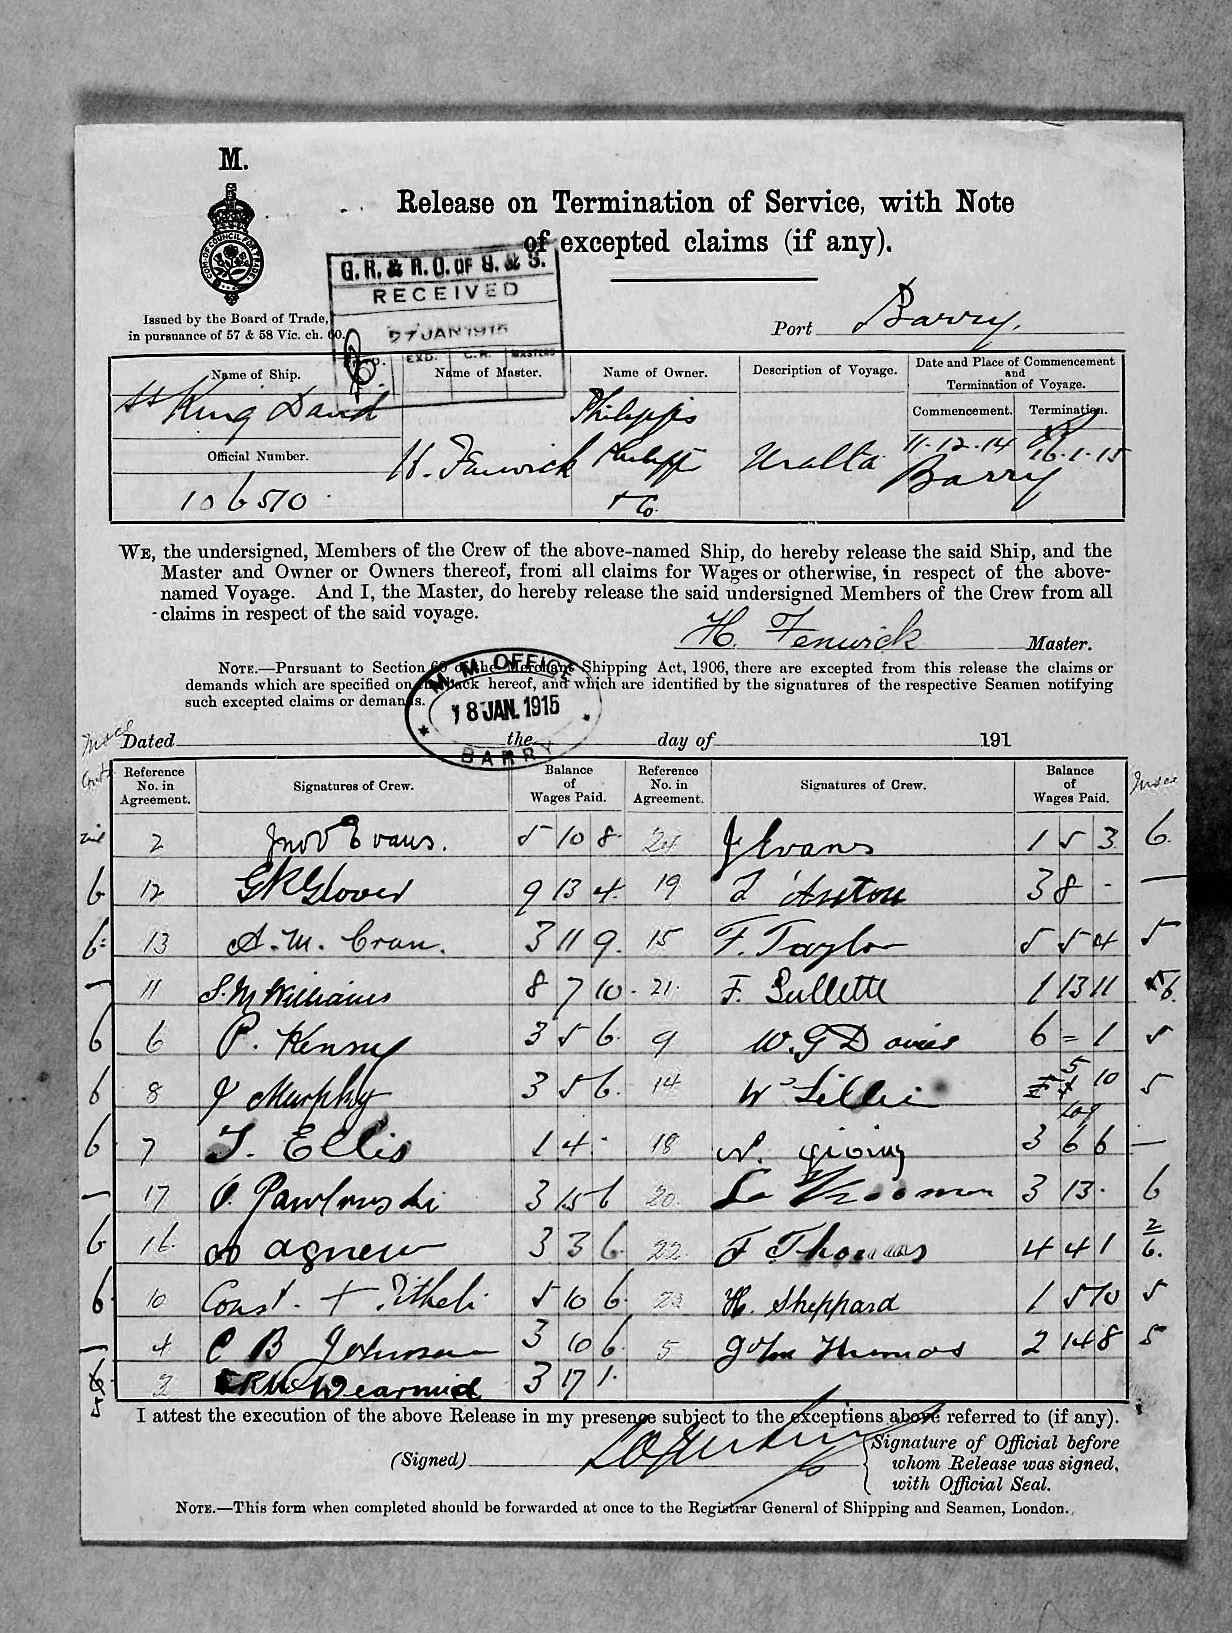 M.
Release on Termination of Service, with Note
of excepted claims (if any).
COM. OF COUNCIL FOR TRADE
G.R. & R.O. OF S. & S.
RECEIVED
27 JAN 1915
EXD. C.R. MASTERS
Issued by the Board of Trade,
in pursuance of 57 & 58 Vic. ch. 60.
Port Barry.
Name of Ship.
Name of Master.
Name of Owner.
Description of Voyage.
Date and Place of Commencement
and
Termination of Voyage.
Commencement. Termination.
ss King David
Official Number.
106510
H. Fenwick
Philipps
Philipps
& Co.
Malta
11-12-14 16.1.15
Barry
WE, the undersigned, Members of the Crew of the above-named Ship, do hereby release the said Ship, and the
Master and Owner or Owners thereof, from all claims for Wages or otherwise, in respect of the above-
named Voyage. And I, the Master, do hereby release the said undersigned Members of the Crew from all
claims in respect of the said voyage.
H. Fenwick Master.
NOTE.—Pursuant to Section 60 of the Merchant Shipping Act, 1906, there are excepted from this release the claims or
demands which are specified on the back hereof, and which are identified by the signatures of the respective Seamen notifying
such excepted claims or demands.
M.M. OFFICE
18 JAN. 1915
BARRY
Dated the day of 191
Reference No. in Agreement. Signatures of Crew. Balance of Wages Paid. Reference No. in Agreement. Signatures of Crew. Balance of Wages Paid.
nil 2 Jno D Evans. 5 10 8 24 J Evans 1 5 3 6
6 12 G R Glover 9 13 4 19 Anton 3 8 - —
6 13 A. M. Cran. 3 11 9 15 F. Taylor 5 5 4 5
— 11 S. M Williams 8 7 10 21 F. Gullette 1 13 11 6
6 6 P. Kenny 3 5 6 9 W. G Davies 6 = 1 5
6 8 J Murphy 3 5 6 14 W Lillie 5 10 5
6 7 T. Ellis 1 4 - 18 N. 3 6 6 —
— 17 Pawlowski 3 15 6 20 3 13 - 6
6 16 agnew 3 3 6 22 F Thomas 4 4 1 2/6
6 10 Const. + Pitheli 5 10 6 23 H. Sheppard 1 5 10 5
— 4 C B Johnson 3 10 6 5 John Thomas 2 14 8 5
Wearmid 3 17 1
I attest the execution of the above Release in my presence subject to the exceptions above referred to (if any).
(Signed)
Signature of Official before
whom Release was signed,
with Official Seal.
NOTE.—This form when completed should be forwarded at once to the Registrar General of Shipping and Seamen, London.